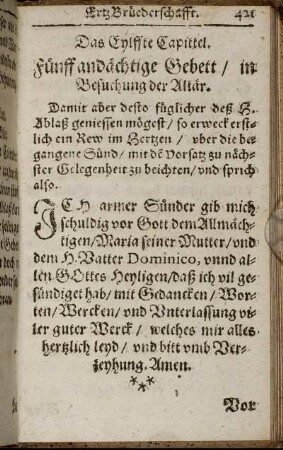 ErtzBrüederschafft. 421
Das Eylffte Capittel.
Fünff andächtige Gebett / in
Besuchung der Altär.
Damit aber desto füglicher deß H.
Ablaß geniessen mögest / so erweck erst-
lich ein Rew im Hertzen / vber die be-
gangene Sünd / mit dē Vorsatz zu näch-
ster Gelegenheit zu beichten / vnd sprich
also.
JCH armer Sünder gib mich
schuldig vor Gott dem Allmäch-
tigen / Maria seiner Mutter / vnd
dem H. Vatter Dominico, vnnd al-
len GOttes Heyligen / daß ich vil ge-
sündiget hab / mit Gedancken / Wor-
ten / Wercken / vnd Vnterlassung vi-
ler guter Werck / welches mir alles
hertzlich leyd / vnd bitt vmb Ver-
zeyhung. Amen.
***
Vor